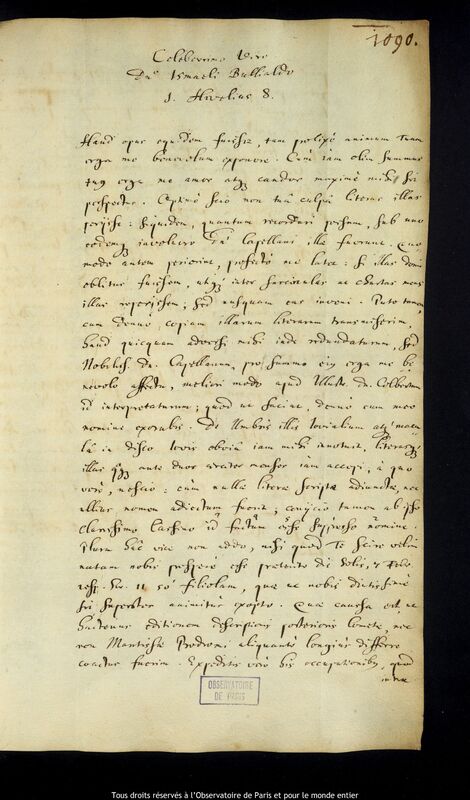 1090.
Celeberrimo Viro
Dno Ismaeli Bullialdo
J. Hevelius S.
Haud opus equidem fuisset, tam prolixè animum tuum
erga me benevolum exponere. Cum iam olim summus
tuus erga me amor atq; candor maximè mihi sit
perspectus. Optimè scio non tuâ culpâ literas illas
periisse: siquidem, quantum recordari possum, sub uno
eodemq; involucro Dn. Capellani illae fuerunt. Quo
modo autem perierint, profectò me latet: si illas domi
oblitus fuissem, utiq; inter farcinulas ac chartas meas
illas reperissem; sed nusquam eas inveni. Puto tamen,
cum denuò copiam illarum literarum transmiserim,
haud quicquam adversi mihi inde redundaturum, sed
Nobiliss. dn. Capellanum, pro summo ejus erga me be
nevolo affectu, meliori modo apud Illustr. dn. Colbertum
id interpretaturum; quod ut faciat, denuò eum meo
nomine exorabis. De Umbris illis Jovialium atq; macu
la in disco Jovis obviâ iam mihi innotuit, literasq;
illas ante duos circiter menses iam accepi, à quo
verò, nescio: cum nullae literae scriptae adjunctae, nec
ullius nomen adiectum fuerit; conijcio tamen ab ipso
clarissimo Cassino id factum esse suppresso nomine.
Plura hac vice non addo, nisi quod Te scire velim
natam nobis prosperè esse praeterito die Solis, 7 Febr.
vesp. Hor. 11 50' filiolam, quae ut nobis diutissimè
sit superstes animitus exopto. Quae caussa est, ut
hactenus editionem descriptionis posterioris Cometae, nec
non Mantissae Prodromi aliquantò longius differre
coactus fuerim. Expeditis verò his occupationibus, quod
OBSERVATOIRE
DE PARIS
Tous droits réservés à l'Observatoire de Paris et pour le monde entier